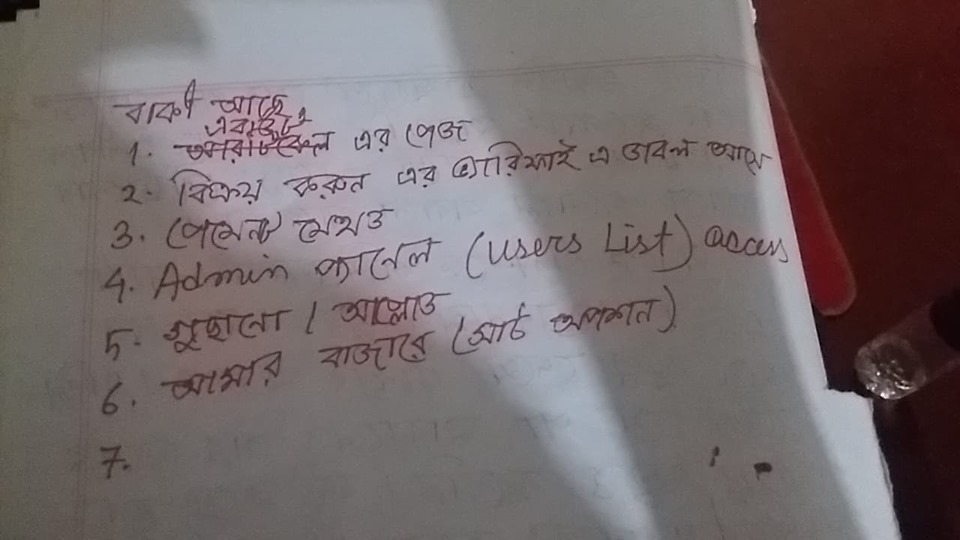 বাকী আছে
1. এর পেজ
2. বিক্রয় করুন এর ভ্যারিফাই এ ডাবল আসে
3. পেমেন্ট মেথড
4. Admin প্যানেল (Users List) access
5. মুছানো / আপ্লোড
6. আমার বাজারে (সার্চ অপশন)
7.